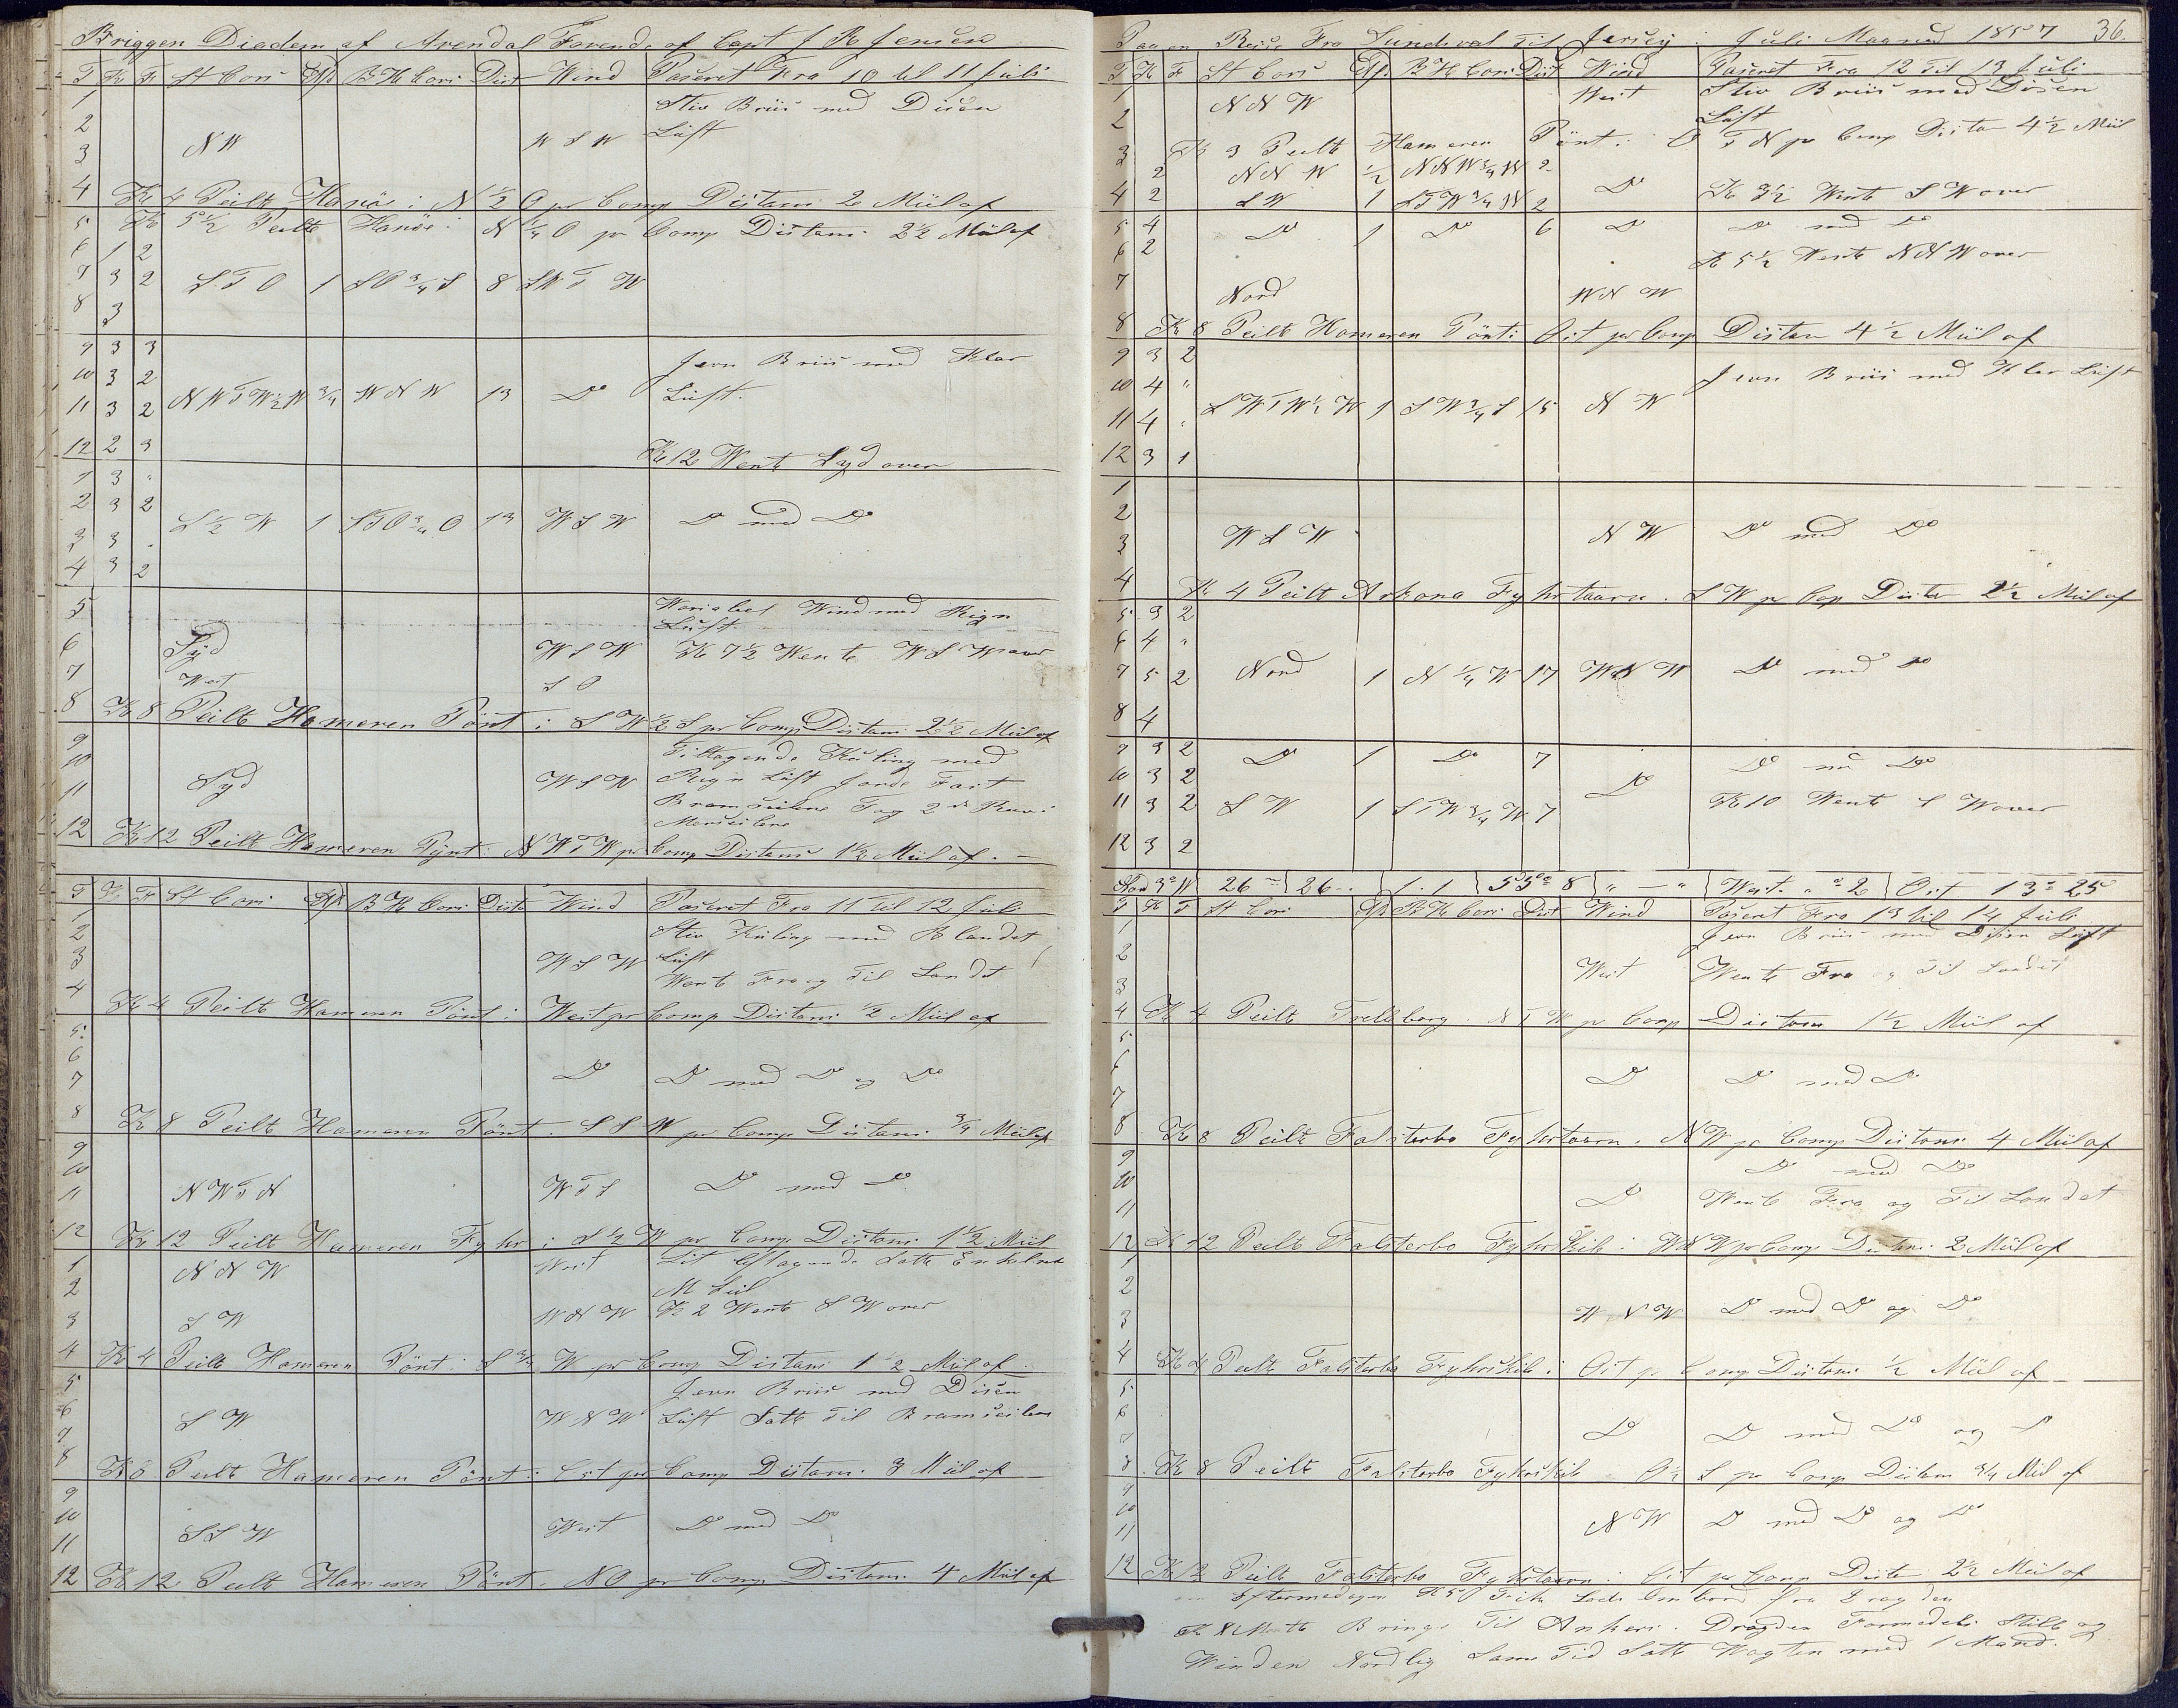 Briggen Diadem af Arendal Førende af Capt J R Jensen
T K F St Cors Afd B H Cors Dist Wind Paseret Fra 10 til 11 Juli
1 Stiv Briis med Disen
2 Luft
3 NW WSW
4 Kl 4 Peilt Hanöe i N ½ O pr Comp Distans 2 Miil af
5 Kl 5½ Peilte Hanöe i N ¼ O pr Comp Distans 2½ Miil af
6 1 2
7 3 2 STO 1 SO ¾ S 8 SWTW
8 3
9 3 3 Jevn Briis med Klar
10 3 2 Luft.
11 3 2 NWTW½W ¾ WNW 13 Do
12 2 3 Kl 12 Went Syd over
1 3 "
2 3 2
3 3 . S ½ W 1 STO ¾ O 13 WSW Do med Do
4 3 2
5 Wariabel Wind med Regn
Luft
6 Syd WSW Kl 7½ Wente WSW over
7 West SO
8 Kl 8 Peilt Hameren Pönt i SW ½ S pr Comp Distans 2½ Miil af
9 Tiltagende Kuling med
10 Syd WSW Regn Luft Gjorde Fast
11 Bramseilene Tog 2de Rev i
Merseilene
12 Kl 12 Peilt Hameren Pynt NWTW pr Comp Distans 1½ Miil af
T K F St Cors Afd B H Cors Dist Wind Paseret Fra 11 til 12 Juli
1
2 Stiv Kuling med Blandet
3 WSW Luft
4 Went Fra og Til Landet
Kl 4 Peilt Hameren Pönt i West pr Comp Distans ½ Miil af
5
6
7 Do Do med Do og Do
8 Kl 8 Peilt Hameren Pönt SSW pr Comp Distans ¾ Miil af
9
10
11 NWTN WTS Do med Do
12 Kl 12 Peilt Hameren Fyhr i S ½ W pr Comp Distans 1½ Miil
1 NNW West Lit Aftagende Satte Enkelrevet
2 M Seil
3 SW WNW Kl 2 Wente SW over
4 Kl 4 Peilt Hameren Pönt i S ¾ W pr Comp Distans 1½ Miil af
5 Jevn Briis med Disen
6 SW WNW Luft Satte Til Bramseilene
7
8 Kl 8 Peilt Hameren Pönt i Ost pr Comp Distans 3 Miil af
9
10
11 SSW West Do med Do
12 Kl 12 Peilt Hameren Pönt NO pr Comp Distans 4 Miil af
Paa en Reise Fra Sundsval Til Jersey i Juli Maaned 1857 36.
T K F St Cors Afd B H Cors Dist Wind Paseret Fra 12 Til 13 Juli
1 NNW West Stiv Briis med Disen
2 Luft
3 Kl 3 Peilt Hameren Pönt i OTN pr Comp Distan 4½ Miil
2 NNW ½ NNW¾W 2
4 2 SW 1 STW¾W 2 Do Kl 3½ Wente SW over
5 4 Do 1 Do 6 Do Do med Do
6 2 Kl 5½ Wente NNW over
7 Nord WNW
8 Kl 8 Peilt Hameren Pönt i Ost pr Comp Distan 4½ Miil af
9 3 2
10 4 " Jevn Briis med Klar Luft
11 4 " SWTW½W 1 SW¾S 15 NW
12 3 1
1
2
3 WSW NW Do med Do
4 Kl 4 Peilt Arkona Fyhrtaarn SW pr Cop Distan 2½ Miil af
5 3 2
6 4 "
7 5 2 Nord 1 N ¼ W 17 WNW Do med Do
8 4
9 3 2 Do 1 Do 7 Do med Do
10 3 2 Do
11 3 2 SW 1 STW¾W 7 Kl 10 Wente SW over
12 3 2
Nord 3° W 26 26 1.1 55°8 " — " West " 2 Ost 13° 25
T K F St Cors Afd B H Cors Dist Wind Paseret Fra 13 til 14 Juli
1 Jevn Briis med Disen Luft
2
3 West Wente Fra og Til Landet
4 Kl 4 Peilt Trelleborg NTW pr Comp Distans 1½ Miil af
5
6
7 Do Do med Do
8 Kl 8 Peilt Falsterbo Fyhrtaarn NW pr Comp Distans 4 Miil af
9 Do med Do
10
11 Do Wente Fra og Til Landet
12 Kl 12 Peilt Falsterbo Fyhrskib i WNW pr Comp Distans 2 Miil af
1
2
3 WNW Do med Do og Do
4 Kl 4 Peilt Falsterbo Fyhrskib i Ost pr Comp Distans ½ Miil af
5
6 Do Do med Do og Do
7
8 Kl 8 Peilt Falsterbo Fyhrskib O½S pr Comp Distans ¾ Miil af
9
10
11 NW Do med Do og Do
12 Kl 12 Peilt Falsterbo Fyhrtaarn i Ost pr Comp Distan 2½ Miil af
Eftermedagen Kl 5 Fik Lods Ombord fra Dragden
Kl 8 Maatte Bringe Til Ankers Dragden Formedels Stilt og
Winden Nordlig Same Tid Satte Wagten med 1 Mand.